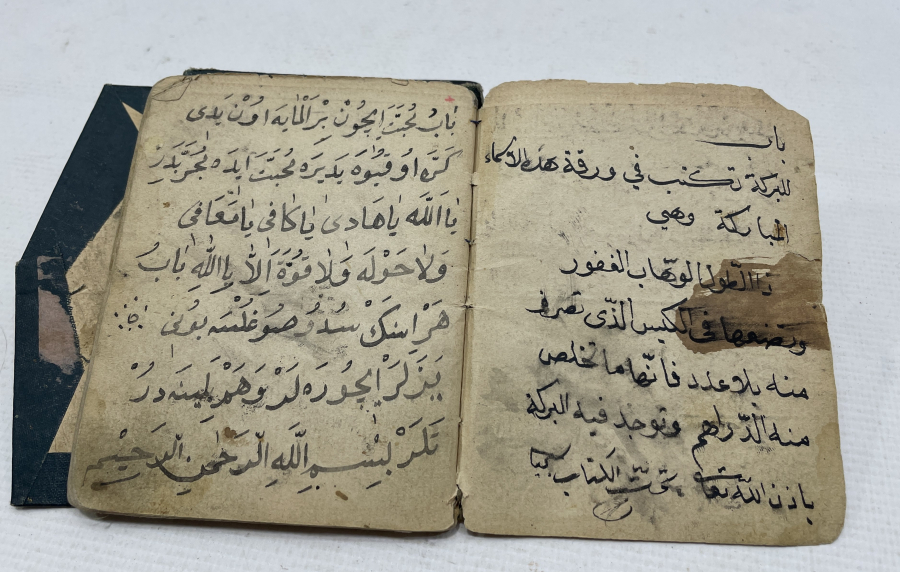 باب
للبركة تكتب في ورقة هذه الاسماء
المباركة وهي
ذا الطول الوهاب الغفور
وتضعها في الكيس الذي تصرف
منه بلا عدد فانها ما تخلص
منه الدراهم وتوجد فيه البركة
باذن الله تعالى تمت الكتاب
بَابُ مُحَبَّتْ اِيچُونْ بِرْ اَلْمَايَه اوُنْ يَدِى
كَرَّه اوُقيُوَه يَديرَه مُحَبَّتْ اَيدَه مُجَرَّبْدِرْ
يٰا اَللّٰه يٰا هَادِى يٰا كَافِى يٰا مُعَافِى
وَلاٰ حَوْلَه وَلاٰ قُوَّةَ اِلَّا بِاللّٰهِ بٰابُ
هَرْ اِينَكْ سُدْ وُ بُونِى
يَزَلَرْ اِيچُورَه لَرْ وَهَمْ
لَرْ بِسْمِ اللّٰهِ الرَّحْمٰنِ الرَّحِيْمِ